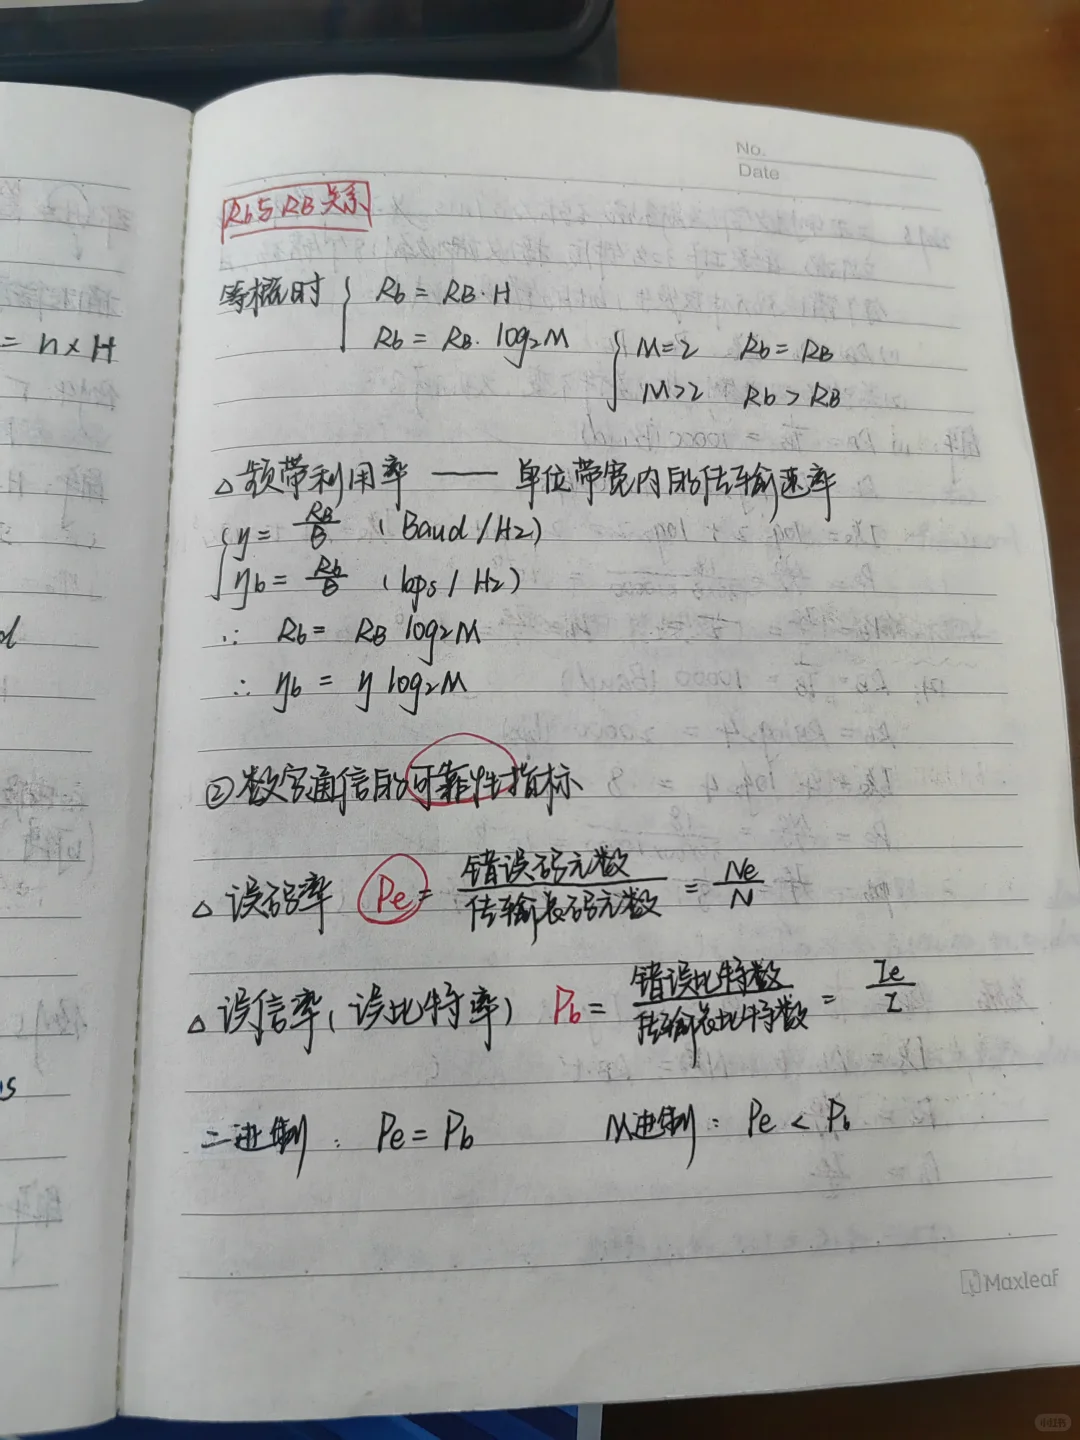 No.
Date
Rb与RB关系
= n×H
等概时 { Rb = RB·H
Rb = RB·log₂M { M=2 Rb = RB
M>2 Rb > RB
△ 频带利用率 —— 单位带宽内的传输速率
{ η = RB/B (Baud/Hz)
ηb = Rb/B (bps/Hz)
∵ Rb = RB log₂M
∴ ηb = η log₂M
② 数字通信的可靠性指标
△ 误码率 Pe = 错误码元数/传输总码元数 = Ne/N
△ 误信率(误比特率) Pb = 错误比特数/传输总比特数 = Ie/I
二进制: Pe = Pb M进制: Pe < Pb
Maxleaf
小红书